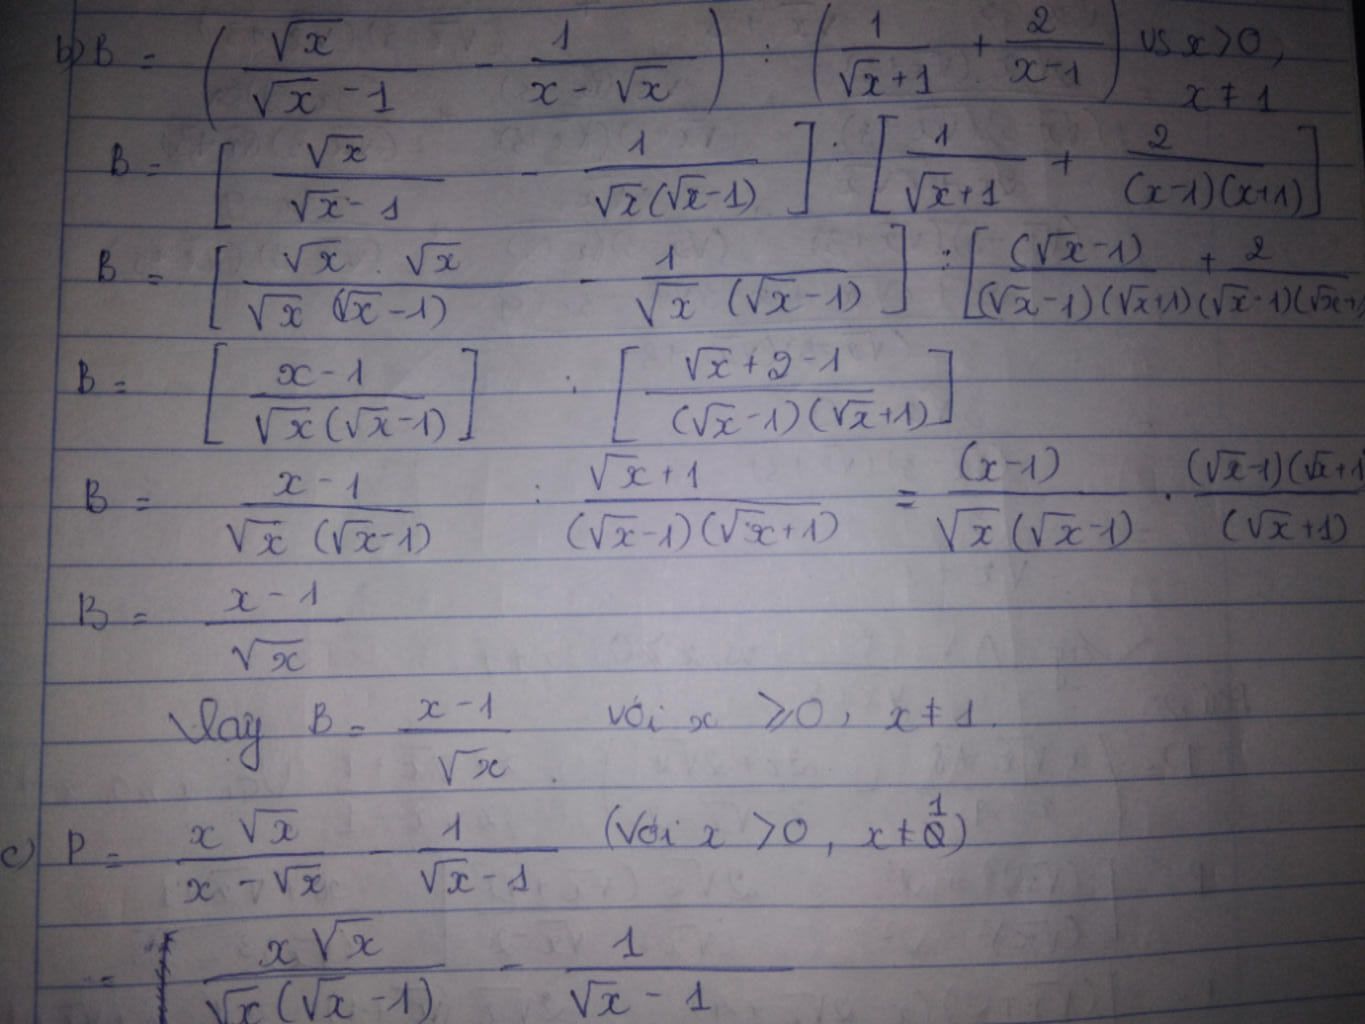 b) B = ( √x / (√x - 1) - 1 / (x - √x) ) : ( 1 / (√x + 1) + 2 / (x - 1) ) vs x > 0, x ≠ 1
B = [ √x / (√x - 1) - 1 / (√x (√x - 1)) ] : [ 1 / (√x + 1) + 2 / ((x - 1)(x + 1)) ]
B = [ √x . √x / (√x (√x - 1)) - 1 / (√x (√x - 1)) ] : [ (√x - 1) / ((√x - 1)(√x + 1)) + 2 / ((√x - 1)(√x +
B = [ (x - 1) / (√x (√x - 1)) ] : [ (√x + 2 - 1) / ((√x - 1)(√x + 1)) ]
B = (x - 1) / (√x (√x - 1)) : (√x + 1) / ((√x - 1)(√x + 1)) = (x - 1) / (√x (√x - 1)) . (√x - 1)(√x + 1 / (√x + 1)
B = (x - 1) / √x
Vậy B = (x - 1) / √x với x ≥ 0, x ≠ 1.
c) P = x √x / (x - √x) - 1 / (√x - 1) (Với x > 0, x ≠ 1)
= x √x / (√x (√x - 1)) - 1 / (√x - 1)